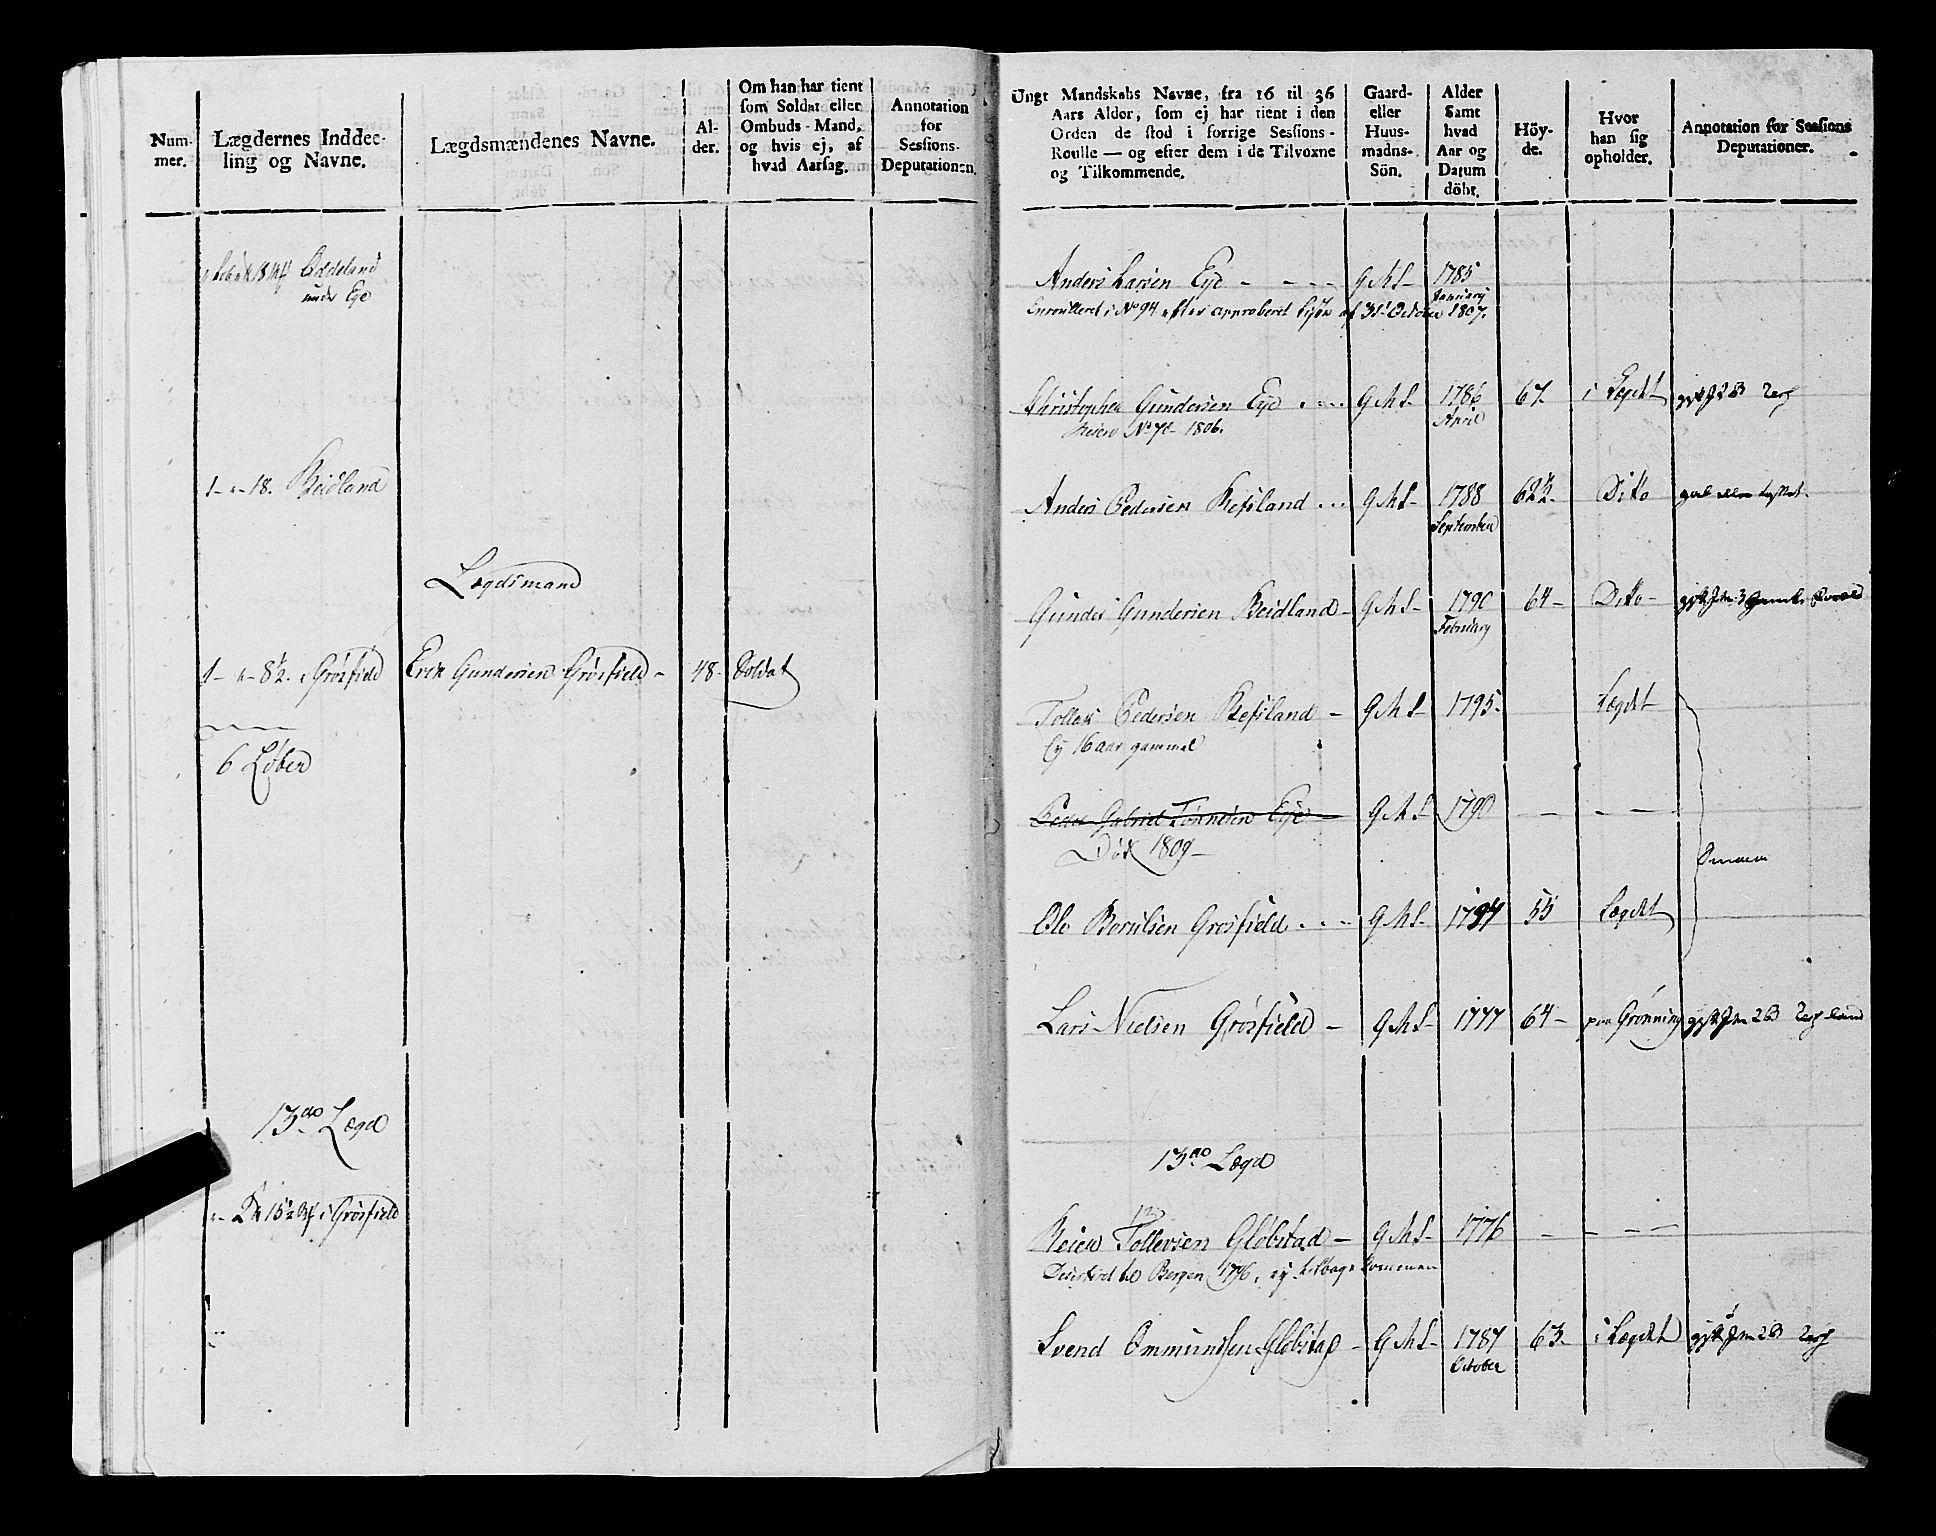 Num-
mer.
Lægdernes Inddee-
ling og Navne.
Lægdsmændenes Navne.
Al-
der.
Om han har tient
som Soldat eller
Ombuds-Mand,
og hvis ej, af
hvad Aarsag.
Annotation
for
Sessions-
Deputationen.
Oddeland
under Eye
1 - " - 18. Reidland
Lægdsmand
1 - " - 8 1/2. i Grösfield Erik Gundersen Grösfield - 48. Soldat
6 Löber
13de Lægd
i Grösfield
Ungt Mandskabs Navne, fra 16 til 36
Aars Alder, som ej har tient i den
Orden de stod i forrige Sessions-
Roulle — og efter dem i de Tilvoxne
og Tilkommende.
Gaard-
eller
Huus-
madns-
Sön.
Alder
Samt
hvad
Aar og
Datum
döbt.
Höy-
de.
Hvor
han sig
opholder.
Annotation for Sessions
Deputationer.
Anders Larsen Eye - - - - G M S - 1785
January
Enrulleret i No 94 efter approberet af 31 October 1807.
Christopher Gundersen Eye . . . . G M S - 1786 67. i Lægdet
April
No 70 - 1806.
Anders Pedersen Refsland . . . G M S - 1788 62 1/2. Dito
September
Gunder Gundersen Reidland - G M S - 1790 64 - Dito -
February
Tollef Pedersen Refsland - G M S - 1795. Lægdet
Ey 16 aar gammel
Peder Gabriel Tönnesen Eye - G M S - 1790 — — —
Död 1809 -
Ole Berulsen Grösfield . . . - G M S - 1794 55 Lægdet
Lars Nielsen Grösfield - G M S - 1777 64 - paa Grönning
13de Lægd
Reier Tollevsen Glöbstad - G M S - 1776 - - - -
til Bergen 1796, ey tilbage kommen
Svend Ommundsen Glöbstad - G M S - 1787 63 - i Lægdet
October